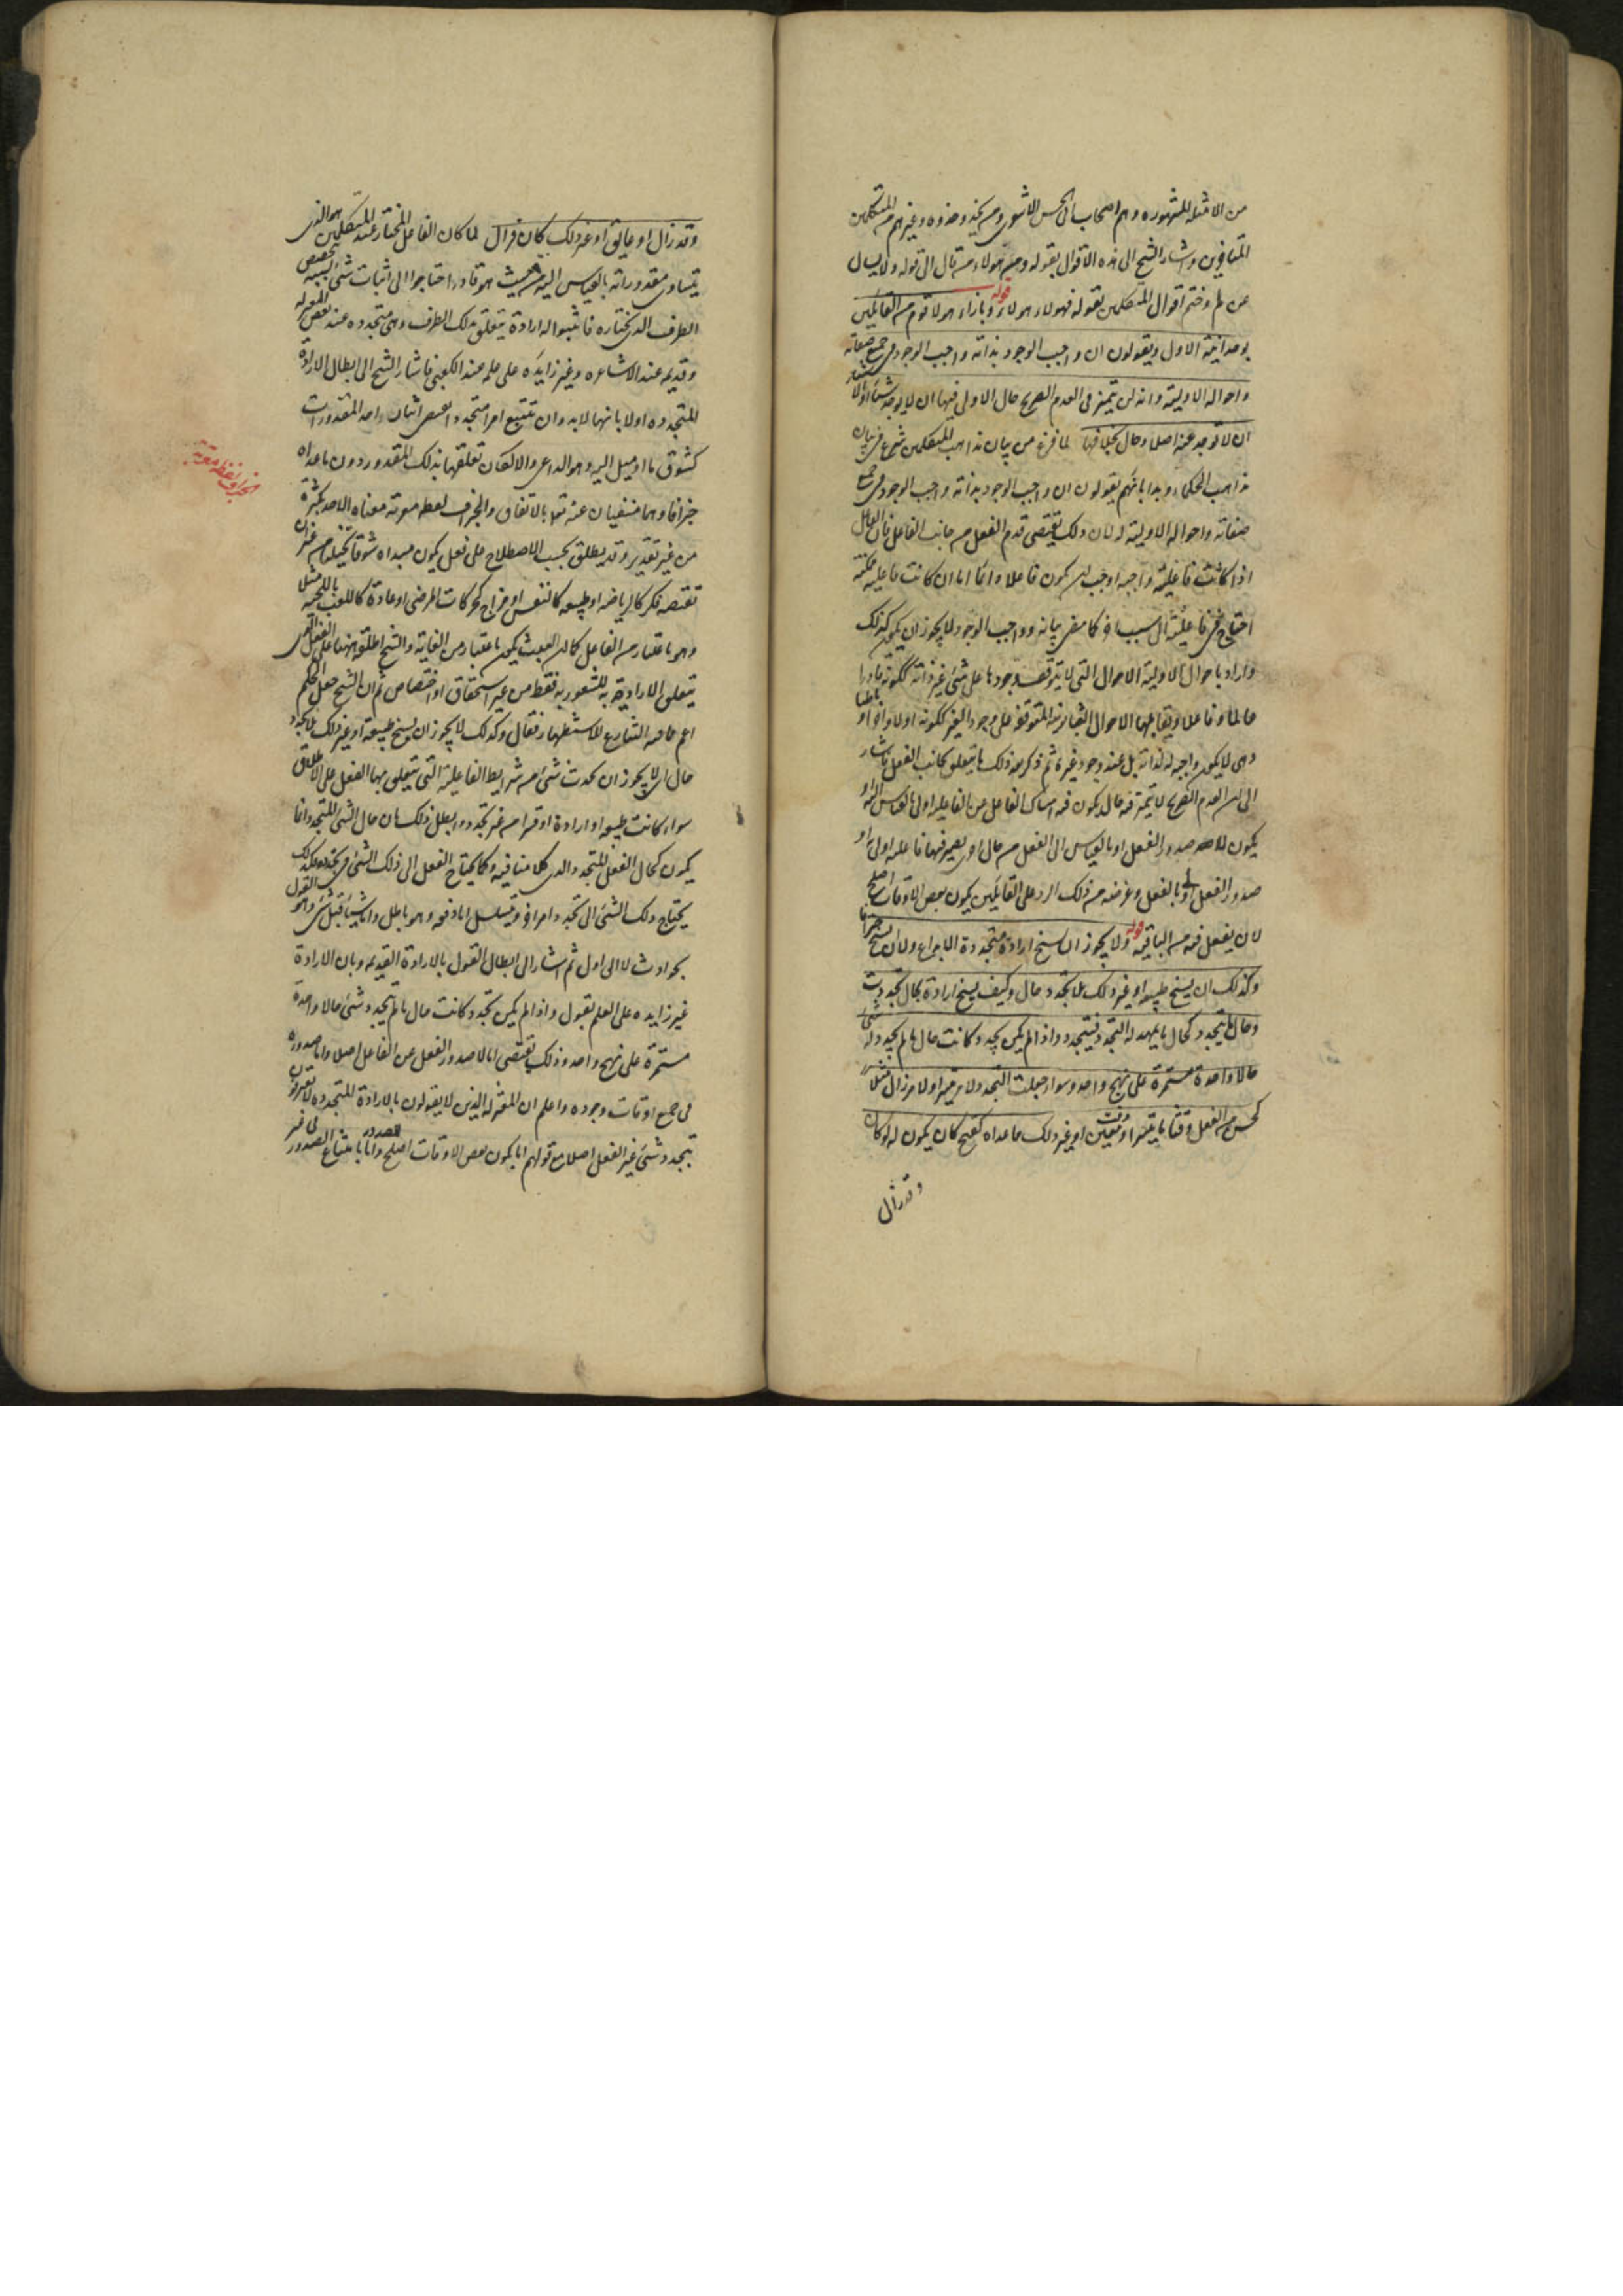 من الامثلة المشهورة وهم اصحاب ابى الحسن الاشعرى ومن يحذو حذوه وغيرهم من المتكلمين
المتاخرين واشار الشيخ الى هذه الاقوال بقوله ومن هولاء من قال الى قوله ولا يسال
عن لم وختم اقوال المتكلمين بقوله فهولاء هولاء قوله وبازاء هولاء قوم من القائلين
بوحدانية الاول ويقولون ان واجب الوجود بذاته واجب الوجود فى جميع صفاته
واحواله الاولية وانه لن يتميز فى العدم الصريح حال الاولى فيها ان لا يوجد شيئا او بالاشياء
ان لا توجد عنه اصلا وحال بخلافها لما فرغ من بيان مذاهب المتكلمين شرع فى بيان
مذاهب الحكماء وبدا بانهم يقولون ان واجب الوجود بذاته واجب الوجود فى جميع
صفاته واحواله الاولية له لان ذلك يقتضى قدم الفعل من جانب الفاعل فان الفاعل
اذا كانت فاعليته واجبة وجب ان يكون فاعلا دائما اما ان كانت فاعليته ممكنة
احتاج فى فاعليته الى سبب اخر كما مضى بيانه وواجب الوجود لا يجوز ان يكون كذلك
واراد باحواله الاولية الاحوال التى لا يتوقف وجودها على شئ غير ذاته ككونه قادرا
عالما وفاعلا ويقابلها الاحوال الثانية المتوقفة على وجود الغير ككونه اولا واخرا او باطنا
وهى لا يكون واجبة له لذاته بل عند وجود غيره ثم ذكر بعد ذلك ما يتعلق بجانب الفعل فاشار
الى ان العدم الصريح لا يتميز فيه حال يكون فيه امساك الفاعل عن الفاعلية اولى بالقياس اليه او
يكون لا صدور الفعل اولى بالقياس الى الفعل من حال اخرى يصير فيها فاعليته اولى به او
صدور الفعل اولى بالفعل وغرضه من ذلك الرد على القائلين بكون بعض الاوقات اصلح
لان يفعل فيه من الباقية قوله ولا يجوز ان تسنح ارادة متجددة الا لداع ولا ان تسنح جزافا
وكذلك ان يسنح طبيعة او غير ذلك بلا تجدد حال وكيف يسنح ارادة بحال تجددت
وحال ما يتجدد كحال ما يمهد له التجدد فيتجدد واذا لم يكن تجدد كانت حال ما لم يتجدد له شئ
حالا واحدة مستمرة على نهج واحد وسواء جعلت التجدد لامر تيسر او لامر زال مثلا
كحسن من الفعل وقتا ما تيسر او وقت معين او غير ذلك مما عداه كقبح كان يكون له لو كان
وقد زال
وقد زال او عائق او غير ذلك كان فزال لما كان الفاعل المختار عند المتكلمين هو الذى
يتساوى مقدوراته بالقياس اليه من حيث هو قادر احتاجوا الى اثبات شئ بسببه يخصص
الطرف الذى يختاره فاثبتوا له ارادة يتعلق بذلك الطرف وهى متجددة عند بعض المعتزلة
وقديمة عند الاشاعرة وغير زايدة على علمه عند الكعبى فاشار الشيخ الى ابطال الارادة
المتجددة اولا بانها لابد وان تتبع امرا متجددا يقتضى اثبات احد المقدورات
كشوق ما او ميل اليه وهو الداعى والا لكان تعلقها بذلك المقدور دون ما عداه
جزافا وهما منفيان عنه تعالى بالاتفاق والجزاف لفظه معربة معناه الاخذ بكثرة
من غير تقدير وقد يطلق بحسب الاصطلاح على فعل يكون مبداه شوقا تخيليا من غير ان
تقتضيه فكر كالرياضة او طبيعة كالنفس او مزاج كحركات المرضى او عادة كاللعب باللحية مثلا
وهو باعتبار من الفاعل كما ان العبث يكون باعتبار من الغاية والشيخ اطلقه ههنا على الفعل الذى
يتعلق الارادة به للشعور به فقط من غير استحقاق او اختصاص ثم ان الشيخ جعل الحكم
اعم مما فيه التنازع للاستظهار فقال وكذلك لا يجوز ان يسنح طبيعة او غير ذلك بلا تجدد
حال اى لا يجوز ان يحدث شئ من شرايط الفاعلية التى يتعلق بها الفعل على الاطلاق
سواء كانت طبيعة او ارادة او قسرا من غير تجدد وابطل ذلك بان حال الشئ المتجدد انما
يكون كحال الفعل المتجدد الذى كلامنا فيه وكما يحتاج الفعل الى ذلك الشئ فى تجدده كذلك
يحتاج ذلك الشئ الى تجدد امر اخر ويتسلسل اما دفعة وهو باطل واما شيئا قبل شئ وهو القول
بحوادث لا الى اول ثم اشار الى ابطال القول بالارادة القديمة وبان الارادة
غير زايدة على العلم بقوله واذا لم يكن تجدد كانت حال ما لم يتجدد شئ حالا واحدة
مستمرة على نهج واحد وذلك يقتضى اما لا صدور الفعل عن الفاعل اصلا واما صدوره
فى جميع اوقات وجوده واعلم ان المعتزلة الذين لا يقولون بالارادة المتجددة لا يعترفون
بتجدد شئ غير الفعل اصلا مع قولهم اما بكون بعض الاوقات اصلح للصدور واما بامتناع الصدور فى غير
الجزاف لفظة معربة